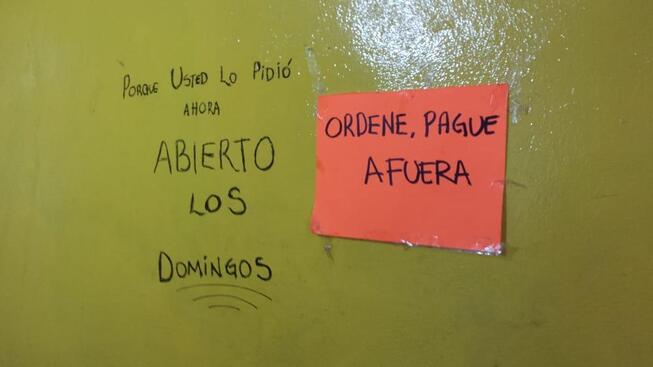 PORQUE USTED LO PIDIÓ
AHORA
ABIERTO
LOS
DOMINGOS
ORDENE, PAGUE
AFUERA